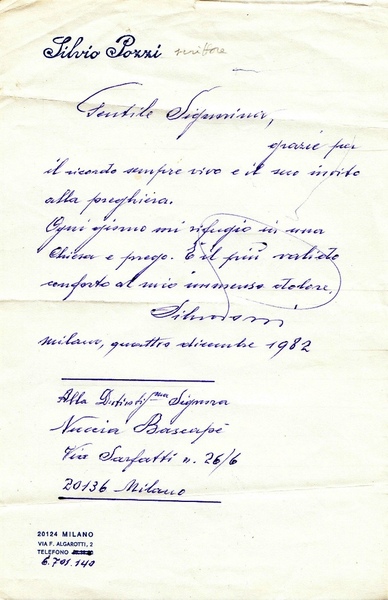 Silvio Pozzi scrittore
Gentile Signorina,
grazie per
il ricordo sempre vivo e il suo invito
alla preghiera.
Ogni giorno mi rifugio in una
Chiesa e prego. È il più valido
conforto al mio immenso dolore.
milano, quattro dicembre 1982
Alla Distintissma Signora
Nuccia Bascapé
Via Sarfatti n. 26/6
20136 Milano
20124 MILANO
VIA F. ALGAROTTI, 2
TELEFONO
6.701.140